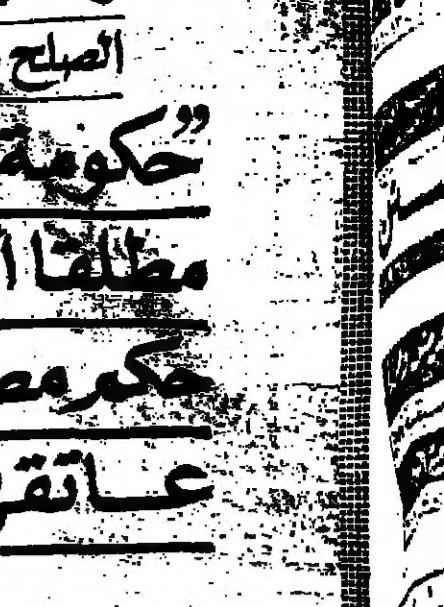 الصلح
"حكومة
مطلقا ا
حكم مص
عاتق